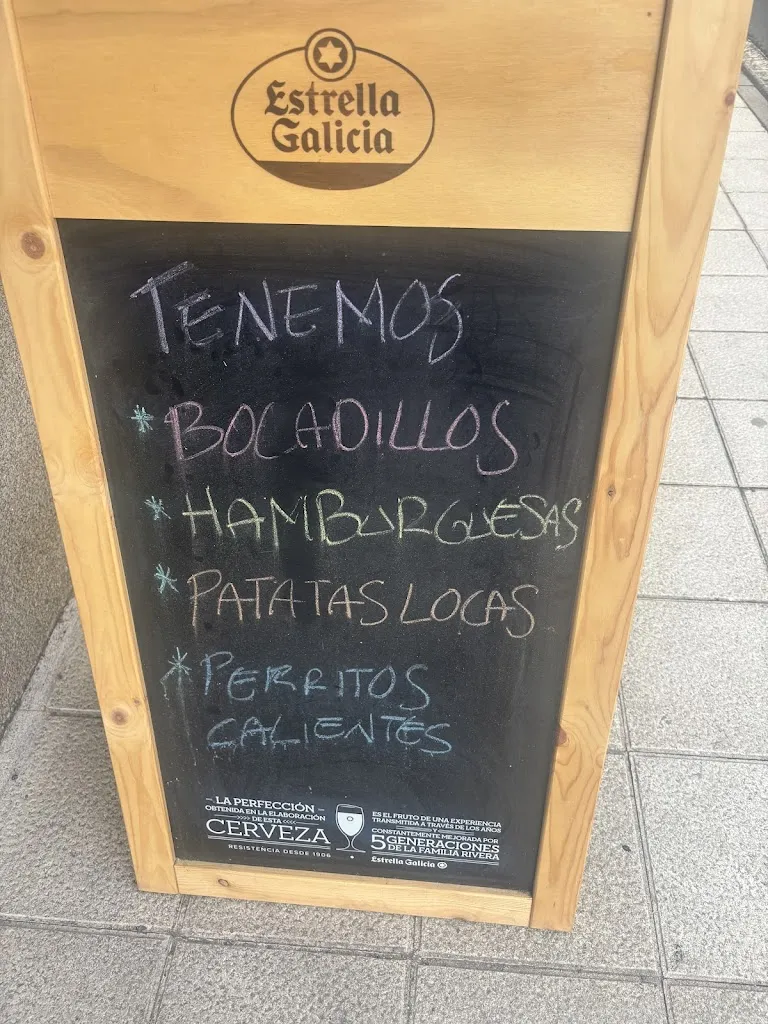 Estrella
Galicia
TENEMOS
* BOCADILLOS
* HAMBURGUESAS
* PATATAS LOCAS
* PERRITOS
CALIENTES
– LA PERFECCIÓN –
OBTENIDA EN LA ELABORACIÓN
>>>> DE ESTA <<<<
CERVEZA
RESISTENCIA DESDE 1906
ES EL FRUTO DE UNA EXPERIENCIA
TRANSMITIDA A TRAVÉS DE LOS AÑOS
Y
CONSTANTEMENTE MEJORADA POR
5 GENERACIONES
DE LA FAMILIA RIVERA
Estrella Galicia